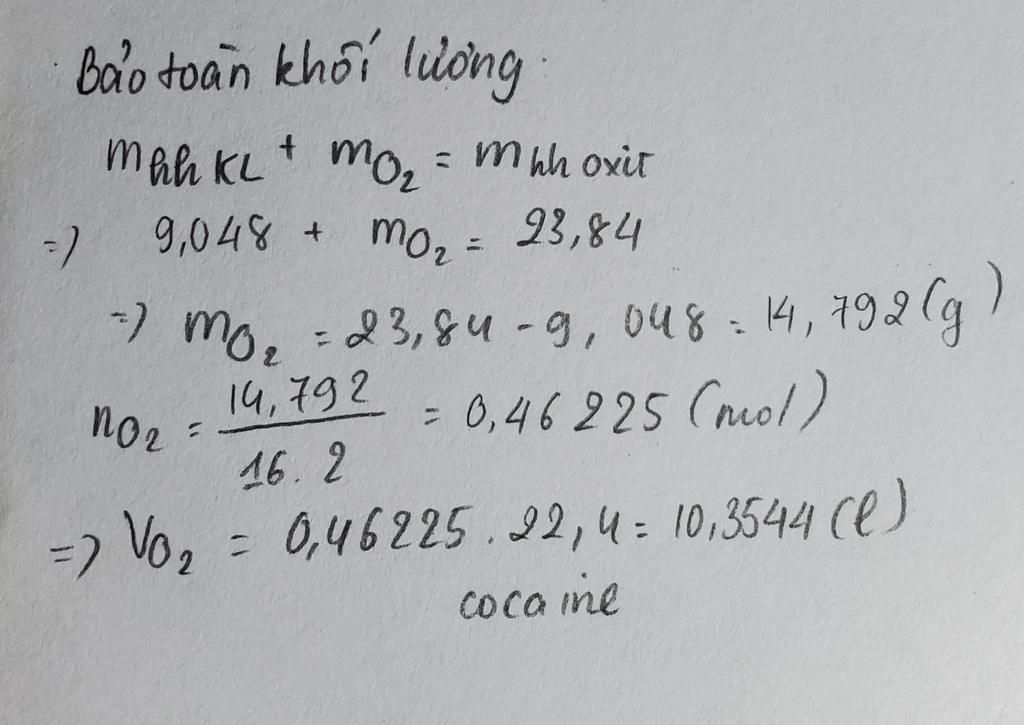 Bảo toàn khối lương.
m hh KL + mO₂ = m hh oxit
=) 9,048 + mO₂ = 23,84
=) mO₂ = 23,84 - 9,048 = 14,792 (g)
nO₂ = 14,792 / 16.2 = 0,46225 (mol)
=) VO₂ = 0,46225 . 22,4 = 10,3544 (l)
cocaine